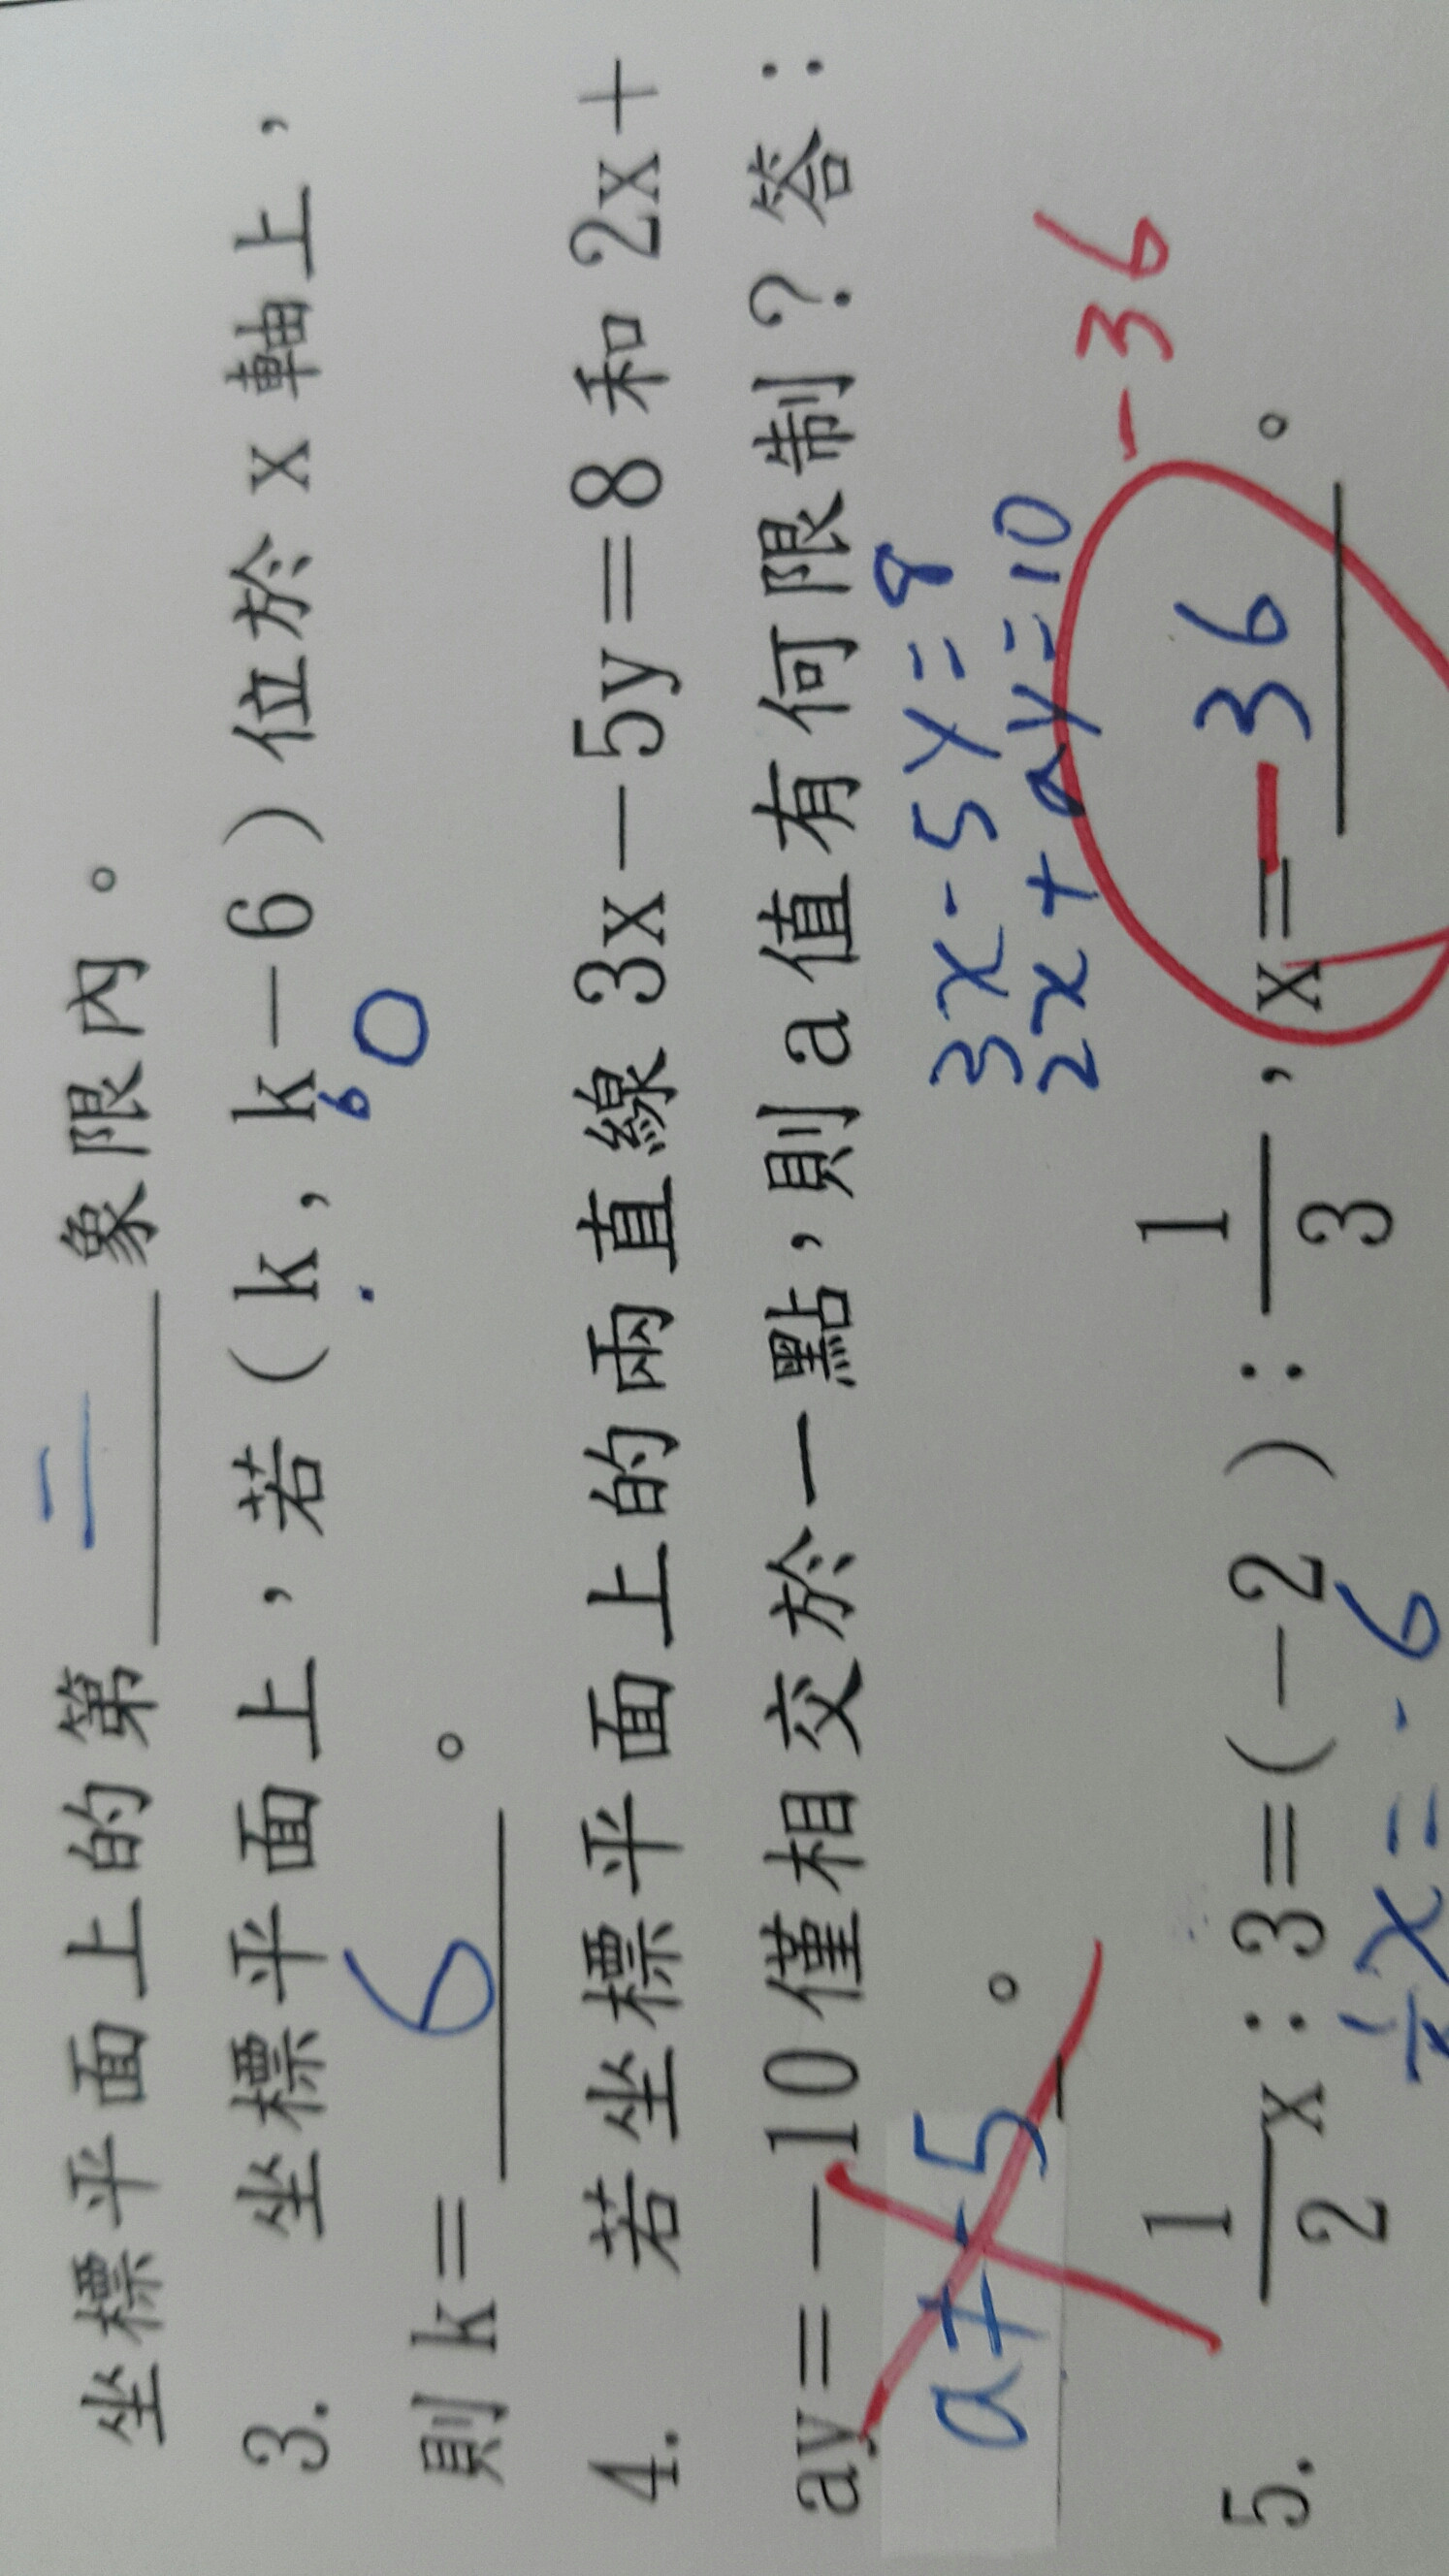 二
坐標平面上的第____象限內。
3. 坐標平面上，若（k，k－6）位於 x 軸上，
6 0
則 k＝ 6 。
4. 若坐標平面上的兩直線 3x－5y＝8 和 2x＋
ay＝－10 僅相交於一點，則 a 值有何限制？答：
a≠-5 。
3x-5y=8
2x+ay=10
-36
5. 1/2 x：3＝(－2)：1/3，x＝-36。
x=-6